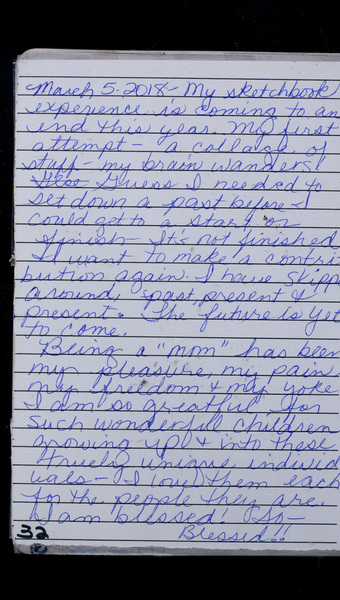 March 5. 2018 - My sketchbook
experience is coming to an
end this year. My first
attempt - a collage of
stuff - my brain wanders!
Guess I needed to
set down a past before I
could get to a start or
finish - It's not finished
I want to make a contri
bution again. I have skipp
around, past, present &
present. The future is yet
to come.
Being a "mom" has been
my pleasure, my pain
my freedom & my yoke
I am so greatful for
such wonderful children
growing up & into these
truely unique individ
uals - I love them each
for the people they are.
I am blessed! So -
Blessed!!
32